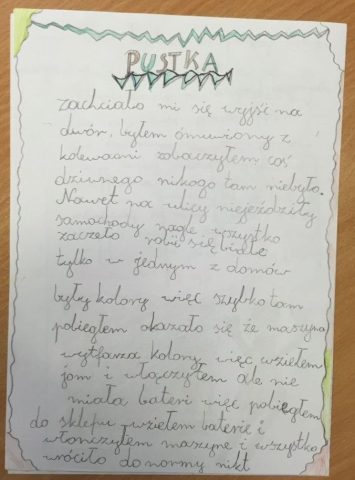 PUSTKA
zachciało mi się wyjść na
dwór, byłem ómuwiony z
kolewgami zobaczyłem coś
dziwnego nikogo tam niebyło.
Nawet na ulicy niejeździły
samochody nagle wszystko
zaczeło robić się białe
tylko w jednym z domów
były kolory więc szybko tam
pobiegłem okazało się że maszyna
wytfarza kolory więc wziełem
jom i włoczyłem ale nie
miała bateri więc pobiegłem
do sklepu wziełem baterie i
włonczyłem maszyne i wszystko
wróciło do normy nikt